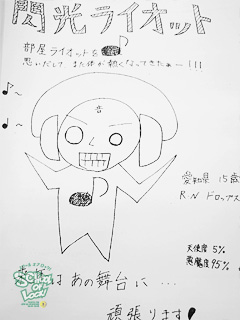 閃光ライオット
部屋ライオットを
思いだして また体が熱くなってきたぁー!!!
愛知県 15歳
R.N ドロップス
天使度 5%
悪魔度 95%
はあの舞台に…
頑張ります!